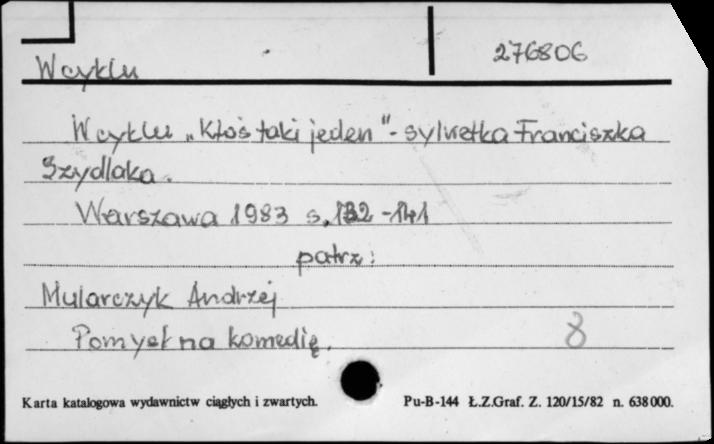 276806
W cyklu
W cyklu „Ktoś taki jeden" - sylwetka Franciszka
Szydlaka.
Warszawa 1983 s. 132-141
patrz:
Mularczyk Andrzej
Pomysł na komedię.
8
Karta katalogowa wydawnictw ciągłych i zwartych. Pu-B-144 Ł.Z.Graf. Z. 120/15/82 n. 638000.